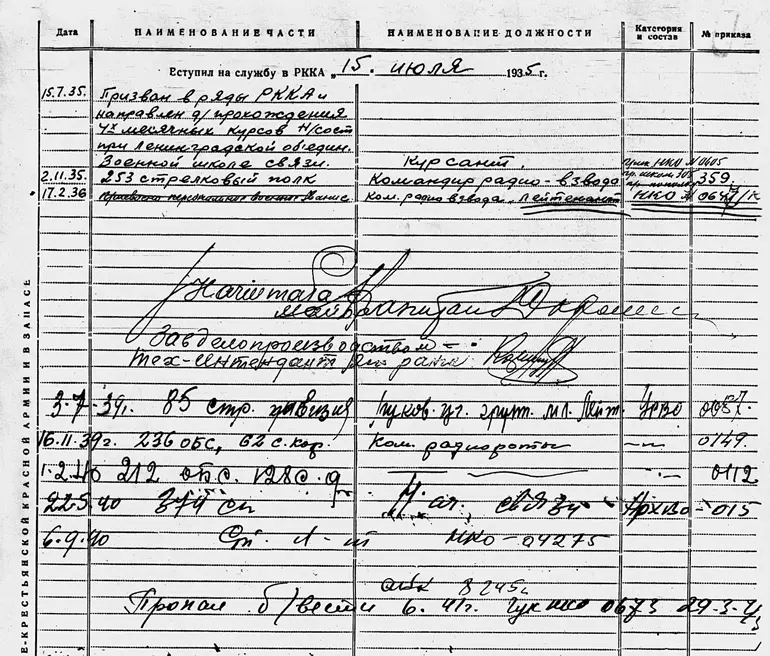 Дата НАИМЕНОВАНИЕ ЧАСТИ НАИМЕНОВАНИЕ ДОЛЖНОСТИ Категория и состав № приказа
Вступил на службу в РККА „15. июля 1935 г.
15.7.35. Призван в ряды РККА и
направлен д/прохождения
4х месячных курсов Н/сост
при Ленинградской объедин.
Военной школе связи. Курсант. НКО N 0605
2.11.35. 253 стрелковый полк Командир радио-взвода 359.
17.2.36 Присвоено персональное военное Ком. радио взвода. Лейтенант НКО N
Начштаба
капитан
Завделопроизводством
тех-интендант ранга
3.7.39г. 85 стр. дивизия мл. Лейт. УрВО 0087.
16.11.39г. 236 обс, 62 с.кор. Ком. радиороты -"- 0149.
1.2.40 212 опс. 128 с.д -"- 0112
22.5.40 374 сп Н. связи 015
6.9.40 Ст. Л-т НКО-04275
Пропал б/вести 6.41г. ГУК НКО 0673 29-3-43
Е-КРЕСТЬЯНСКОЙ КРАСНОЙ АРМИИ И В ЗАПАСЕ